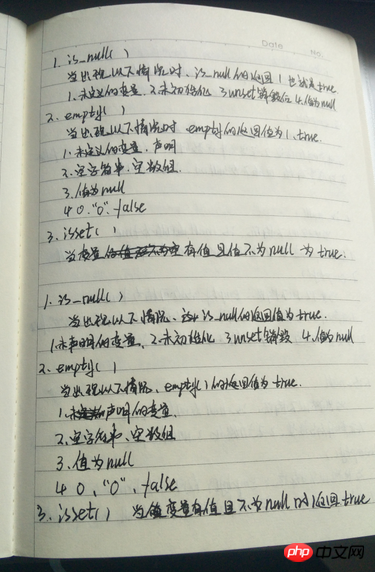 Date No.
1. is_null( )
当出现以下情况时, is_null的返回1也就是true
1.未定义的变量, 2.未初始化 3 unset销毁后 4.值为null
2. empty( )
当出现以下情况时 empty的返回值为1. true.
1.未定义的变量, 声明
2.空字符串、空数组.
3.值为null
4 0. "0". false
3. isset( )
当变量有值且值不为null 为true.
1. is_null( )
当出现以下情况、is_null的返回值为true.
1.未声明的变量, 2.未初始化 3 unset销毁 4.值为null
2. empty( )
当出现以下情况、empty( )的返回值为true.
1.未声明的变量.
2.空字符串、空数组
3.值为null
4 0, "0", false
3. isset( ) 当变量有值且不为null时返回true
php 中文网